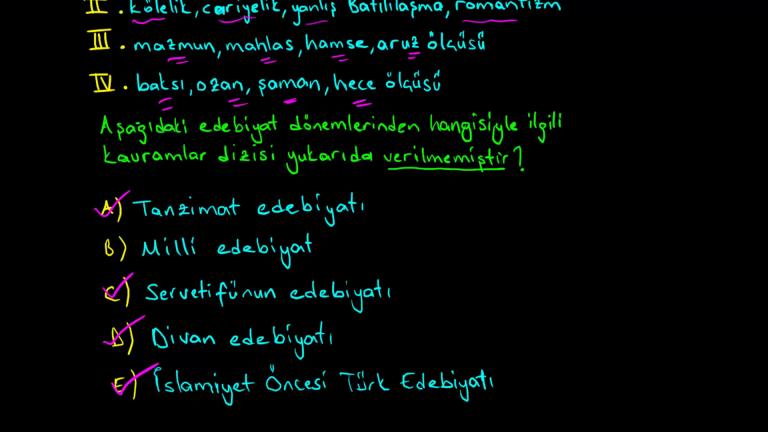 II. kölelik, cariyelik, yanlış Batılılaşma, romantizm
III. mazmun, mahlas, hamse, aruz ölçüsü
IV. baksı, ozan, şaman, hece ölçüsü
Aşağıdaki edebiyat dönemlerinden hangisiyle ilgili
kavramlar dizisi yukarıda verilmemiştir?
A) Tanzimat edebiyatı
B) Milli edebiyat
C) Servetifünun edebiyatı
D) Divan edebiyatı
E) İslamiyet Öncesi Türk Edebiyatı